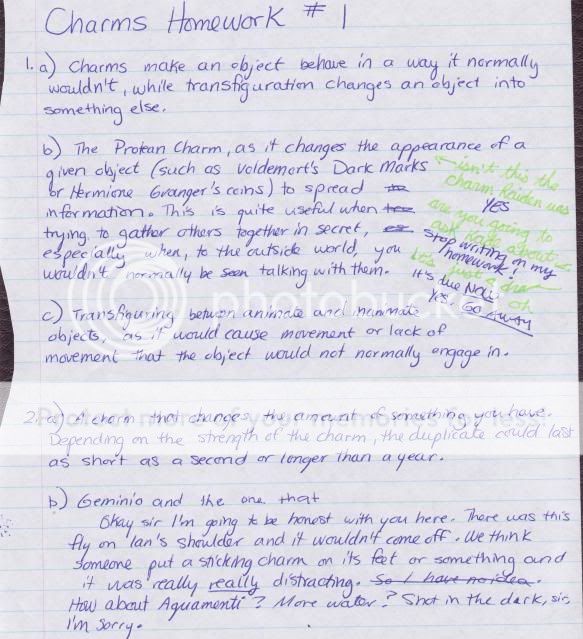 Charms Homework #1
1. a) Charms make an object behave in a way it normally
wouldn't, while transfiguration changes an object into
something else.
b) The Protean Charm, as it changes the appearance of a
given object (such as Voldemort's Dark Marks
or Hermione Granger's coins) to spread
information. This is quite useful when
trying to gather others together in secret,
especially when, to the outside world, you
wouldn't normally be seen talking with them.
isn't this the
charm Raiden was
YES
are you going to
ask about
stop writing on my
homework!
just
It's due NOW
oh
Yes. GO AWAY
c) Transfiguring between animate and inanimate
objects, as it would cause movement or lack of
movement that the object would not normally engage in.
2. a) A charm that changes the amount of something you have.
Depending on the strength of the charm, the duplicate could last
as short as a second or longer than a year.
b) Geminio and the one that
Okay sir I'm going to be honest with you here. There was this
fly on Ian's shoulder and it wouldn't come off. We think
someone put a sticking charm on its feet or something and
it was really really distracting. So I have no idea.
How about Aguamenti? More water? Shot in the dark, sir,
I'm sorry.
photobucket
Protect more of your memories for less!